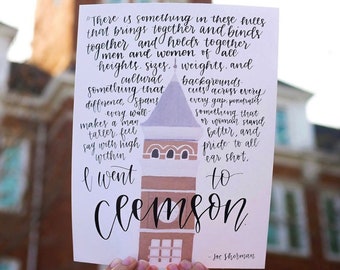 "There is something in these hills
that brings together and binds
together and holds together
men and women of all
heights, sizes, weights, and
cultural backgrounds.
something that cuts across every
difference, spans every gap, penetrates
every wall something that
makes a man or woman stand
taller, feel taller, and
say with high pride to all
within ear shot,
I went to
Clemson.
- Joe Sherman